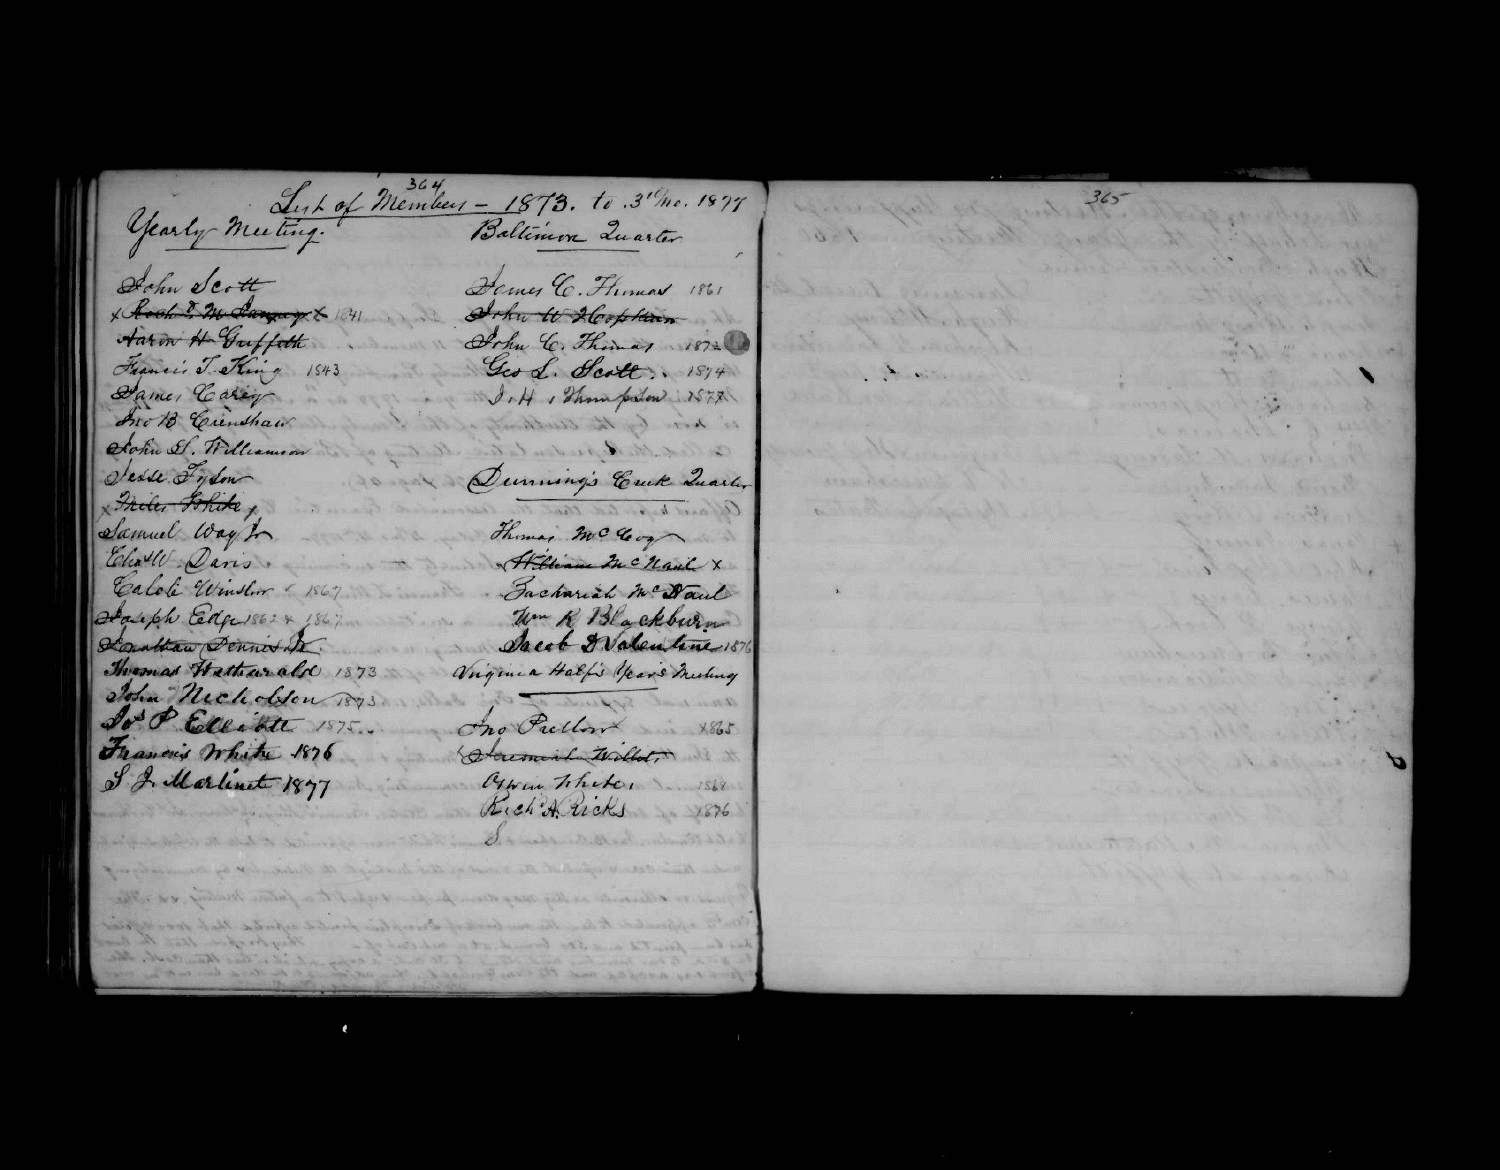 364
List of Members - 1873. to .3d/mo. 1877
Yearly Meeting.
John Scott
x Rich'd M Janney x 1841
Aaron H Griffith
Francis T. King 1843
James Carey
Jno B Crenshaw
John S. Williamson
Jesse Tyson
x Miles White x
Samuel Way Jr
W. Davis
Caleb Winslow 1867
Joseph Edge 1862 & 1867
Jonathan Dennis Jr
Thomas Hatherald 1873
John Nicholson 1873
Jos P Elliott 1875
Francis White 1876
S J. Martinet 1877
Baltimore Quarter
James C. Thomas 1861
John W Hopkins
John C. Thomas
Geo L. Scott. 1874
J. H. Thompson 1877
Dunning's Creek Quarter
Thomas McCoy
William McNaul x
Zachariah McNaul
Wm R Blackburn
Jacob D Valentine 1876
Virginia Half Year's Meeting
Jno Pretlow 1865
Jeremiah
White 1869
Rich'd A. Ricks 1876
S
365